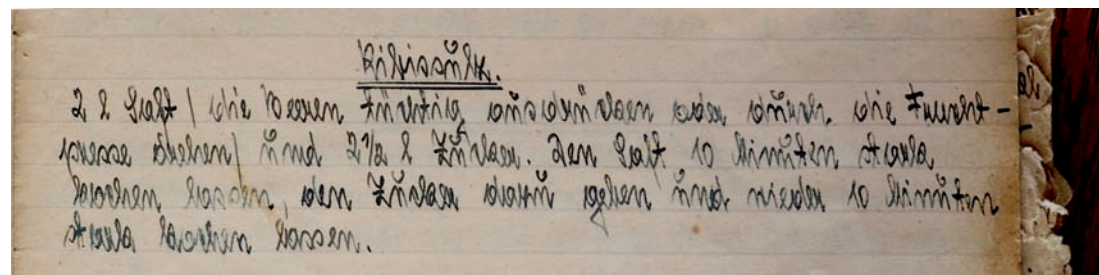 Ribissülz.
2 l Saft / die Beeren tüchtig ausdrücken oder durch die Frucht-
presse drehen / und 2 1/2 l Zucker. Den Saft 10 Minuten stark
kochen lassen, den Zucker dazu geben und wieder 10 Minuten
stark kochen lassen.